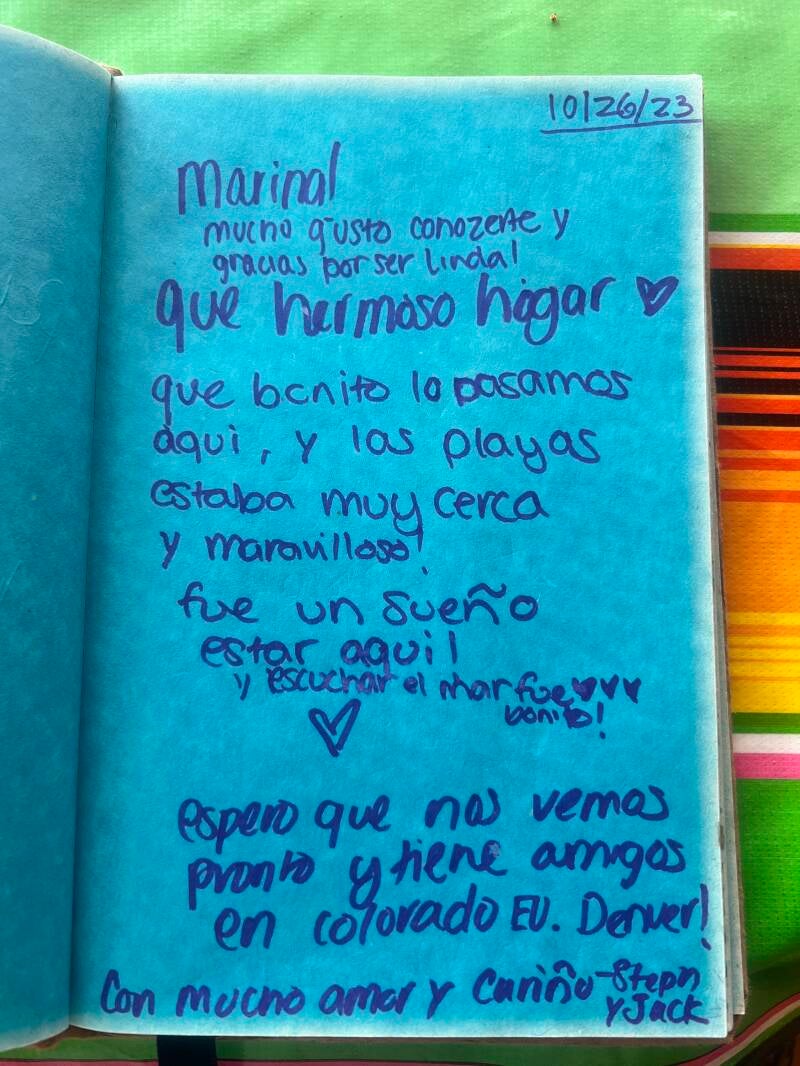 10/26/23
Marina!
mucho gusto conozerte y
gracias por ser linda!
que hermoso hogar
que bonito lo pasamos
aqui, y las playas
estaba muy cerca
y maravilloso!
fue un sueño
estar aqui!
y escuchar el mar fue
bonito!
espero que nos vemos
pronto y tiene amigos
en colorado EU. Denver!
Con mucho amor y cariño - Steph
y Jack